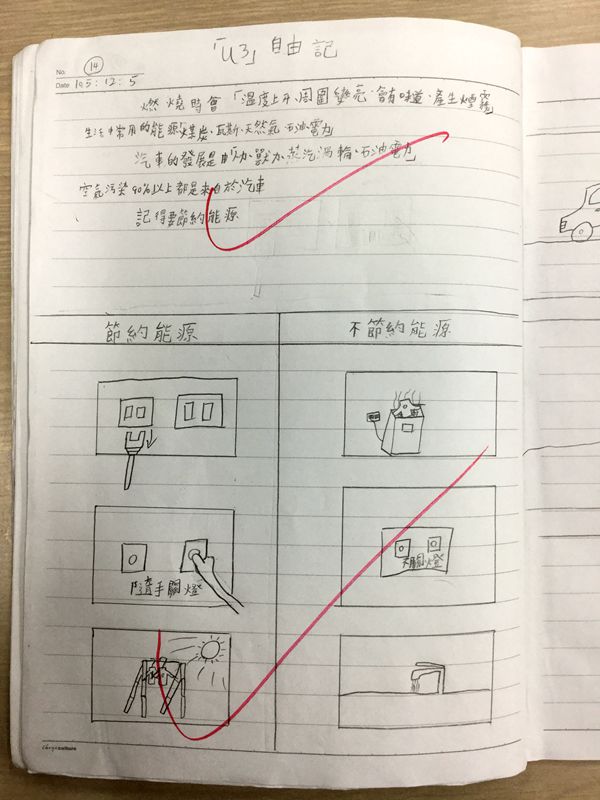 「U3」自由記
No: 14
Date 105:12:5
燃燒時會「溫度上升、周圍變亮、會有味道、產生煙霧」
生活中常用的能源「煤炭、瓦斯、天然氣、石油電力」
汽車的發展是由「人力、獸力、蒸汽渦輪、石油電力」
空氣污染90%以上都是來自於汽車
記得要節約能源
節約能源 不節約能源
隨手關燈
不關燈